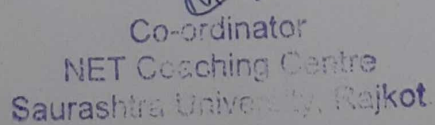 Co-ordinator
NET Coaching Centre
Saurashtra University, Rajkot.